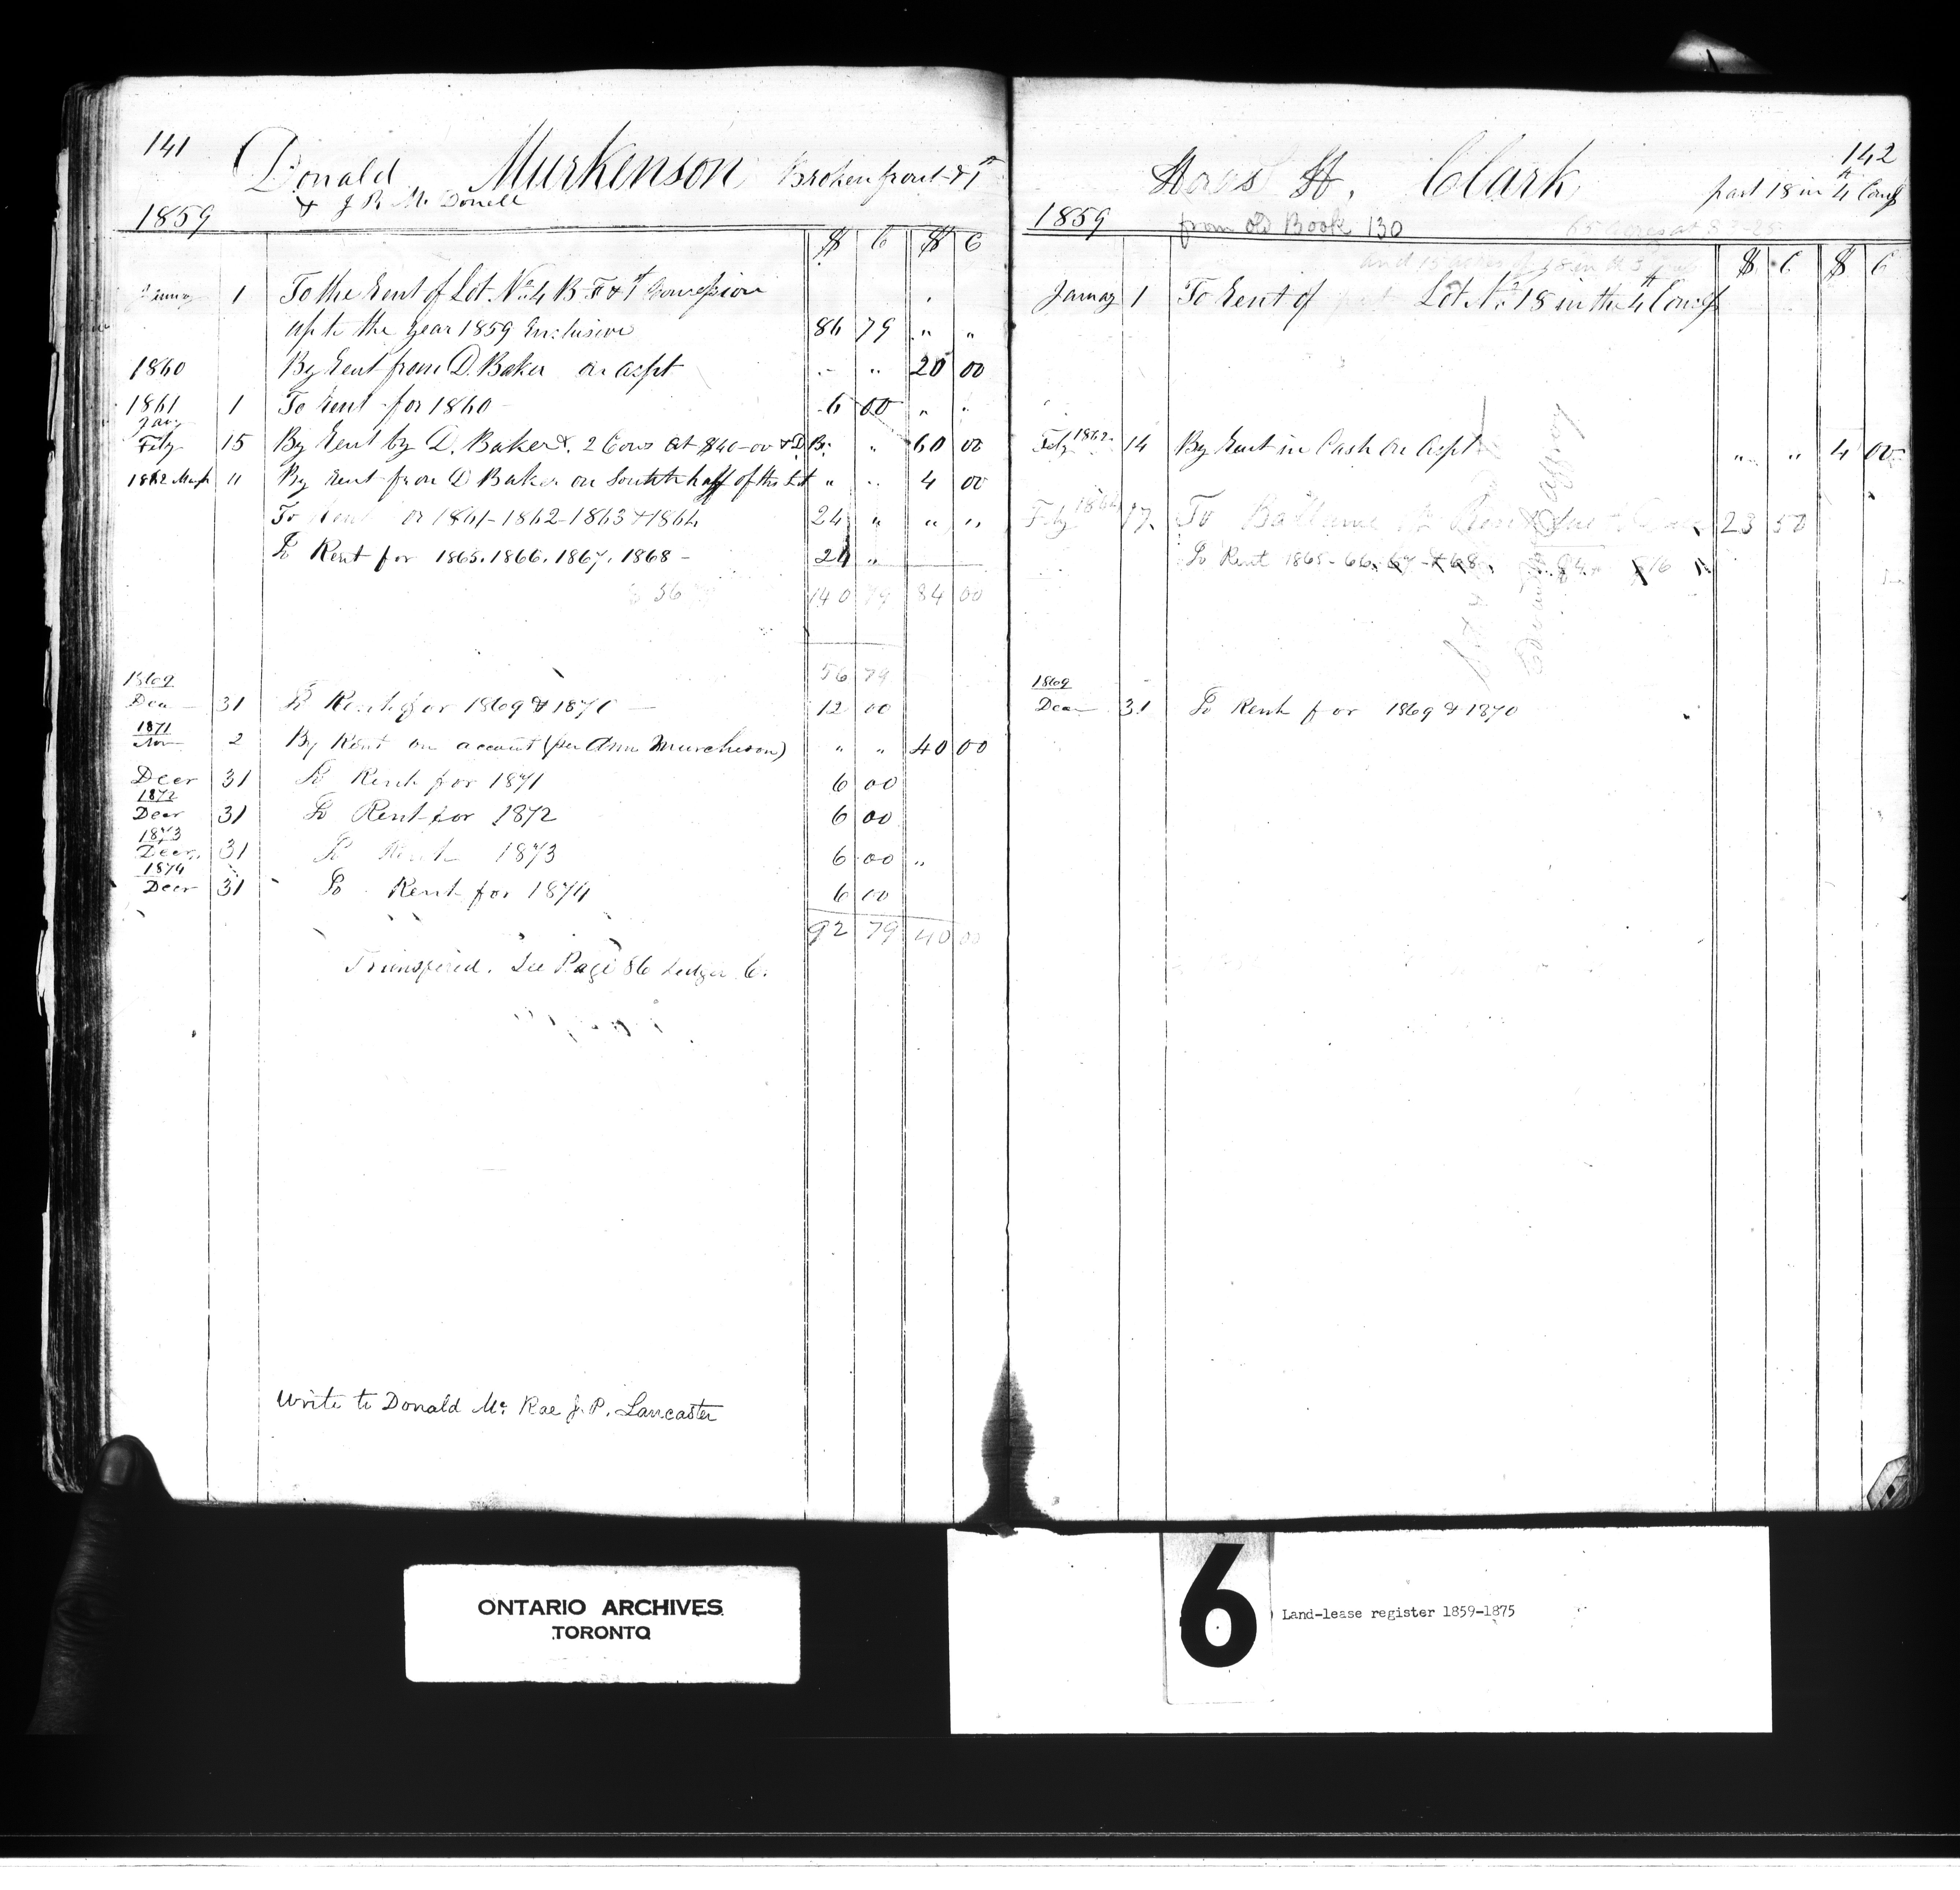 141
Donald Murkenson Broken front & 1st
& J. R. Mc Donell
1859
$ C $ C
January 1 To the Rent of Lot No. 4 B. F & 1st Concession
up to the year 1859 Enclusive 86 79 " "
1860 By Rent from D. Baker on acpt " " 20 00
1861 Jany 1 To Rent for 1860 6 00 " "
Feby 15 By Rent by D. Baker & 2 Cows at $40-00 & D. B. " 60 00
1862 March 11 By Rent from D Baker on South half of this Lot " " 4 00
To Rent for 1861-1862-1863 & 1864 24 " " "
To Rent for 1865. 1866. 1867. 1868 - 24 "
56 79 140 79 84 00
56 79
1869
Dec 31 To Rent for 1869 & 1870 12 00
1871
Nov 2 By Rent on account (per Ann Murcheson) " " 40 00
Deer 31 To Rent for 1871 6 00
1872
Deer 31 To Rent for 1872 6 00
1873
Deer. 31 To Rent 1873 6 00 "
1874
Deer 31 To Rent for 1874 6 00
92 79 40 00
Transfered. See Page 86 Ledger C.
Write to Donald Mc Rae J. P. Lancaster
142
H. Clark part 18 in 4th Conc
1859 from Old Book 130
65 acres at
and 15 acres of 18 in the 3
$ C $ C
January 1 To Rent of part Lot No. 18 in the 4th Con
Feby 1862 14 By Rent in Cash on acpt " " 4 00
Feby 1864 17 To Ballance of Rent due 23 50
To Rent 1865-66. 67 & 68. $16
1869
Dec 31 To Rent for 1869 & 1870
ONTARIO ARCHIVES
TORONTO
6
Land-lease register 1859-1875